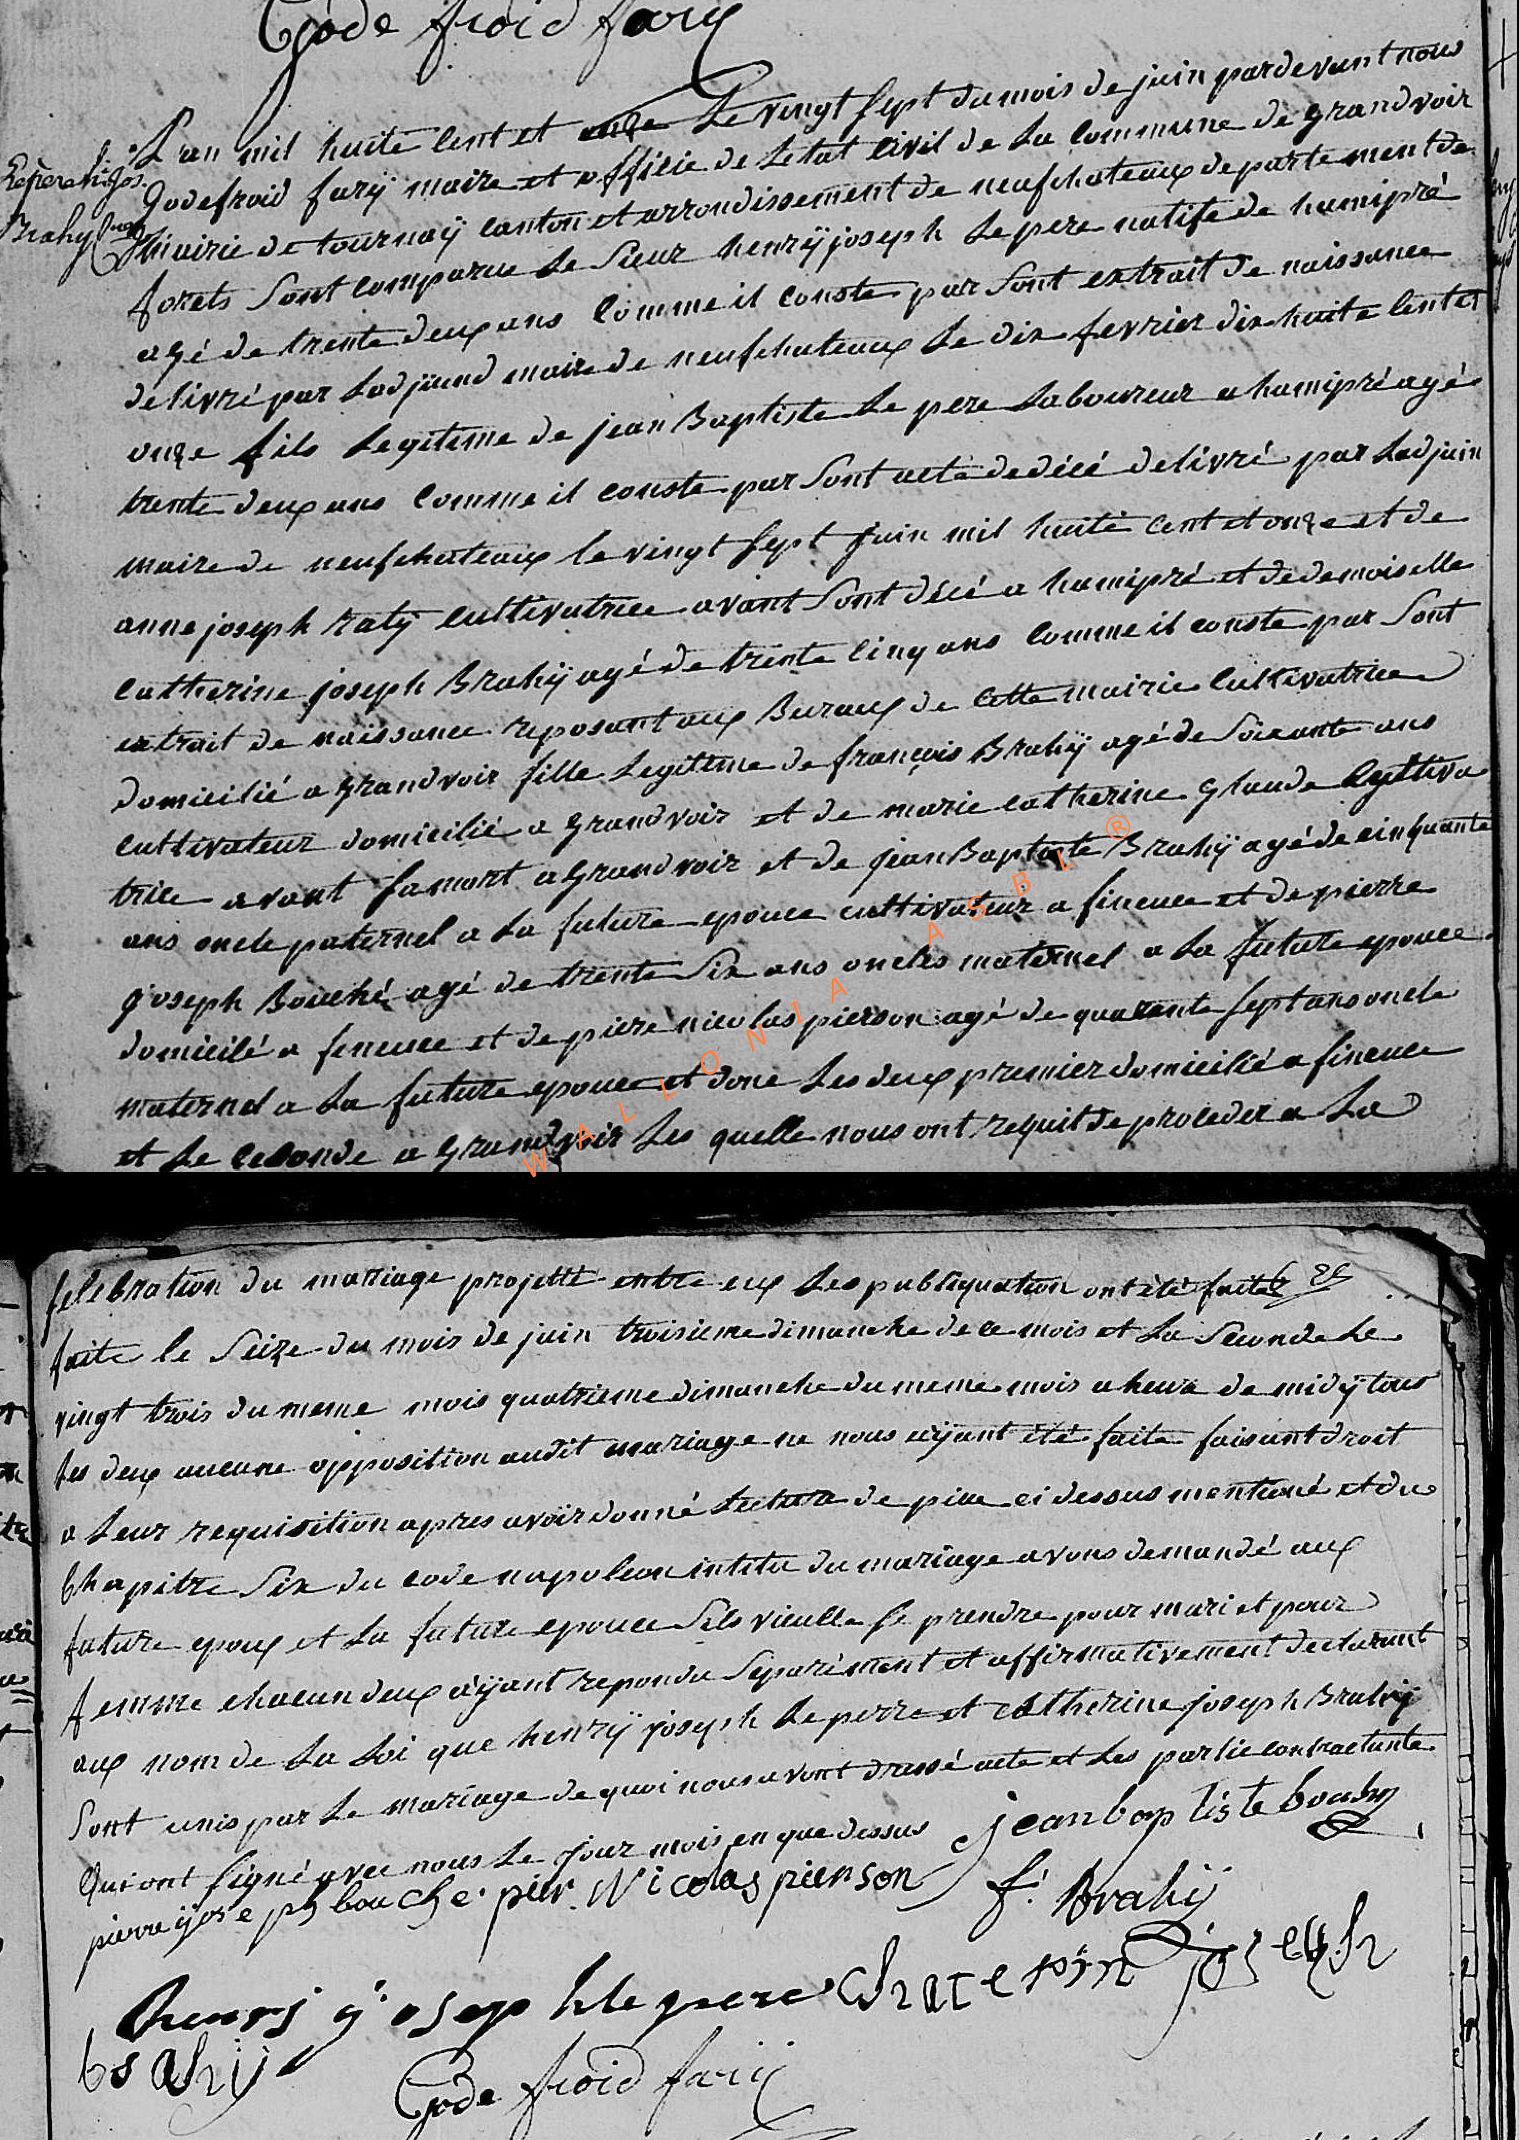 Gode froid fary
L'an mil huite cent et onze Le vingt sept du mois de juin pardevant nous
Godefroid farÿ maire et officie de Letat civil de La commune de grandvoir
Brahÿ
mairie de tournaÿ canton et arrondissement de neufchateaux departement de
forets Sont comparue Le Sieur henrÿ joseph Le pere natife de hamipré
agé de trente deux ans comme il conste par Sont extrait de naissance
delivré par Ladjüind maire de neufchateaux Le dix fevrier dix huite Cent et
onze fils Legiteme de jean Baptiste Le pere Laboureur a hamipré agé
trente deux ans comme il conste par Sont acte de décé delivré par Ladjuin
maire de neufchateaux le vingt Sept juin mil huite cent et onze et de
anne joseph ratÿ cultivatrice avant Sont décé a hamipré et de demoiselle
catherine joseph Brahÿ agé de trente cinq ans comme il conste par Sont
extrait de naissance reposant aux Buraux de cette mairie Cultivatrice
domicilié a grandvoir fille Legiteme de françois Brahÿ agé de Soixante ans
cultivateur domicilié a grandvoir et de marie catherine glaude Cultiva
trice avant Samort a grandvoir et de jean Baptiste Brahÿ agé de cinquante
ans oncle paternel a La future epouce cultivateur a fineuce et de pierre
joseph Bouché agé de trente Six ans oncles maternel a La future epouce
domicilé a fineuce et de piere nicolas pierson agé de quarente Sept ans oncle
maternel a La future epouce et donc Les deux premier domicilié a fineuce
et Le Ceconde a grandvoir Les quelle nous ont requit de proceder a La
WALLONIA ASBL ®
Celebration du mariage projetté entre eux Les publiquation ont été faite
faite le Seize du mois de juin troisieme dimanche de ce mois et La Seconde Le
vingt trois du meme mois quatrieme dimanche du meme mois a heure de midÿ tous
Les deux aucune opposition audit mariage ne nous aÿant été faite faisant droit
a Leur requisition apres avoir donné Lecture de piece ci dessus mentioné et du
Chapitre Six du code napoleon intitu du mariage avons demandé aux
future epoux et La future epouce Sils vieulle Se prendre pour mari et pour
femme chacun deux aÿant repondu Separément et affirmativement declarant
aux nom de La Loi que henrÿ joseph Le perre et catherine joseph Brahÿ
Sont unis par Le mariage de quoi nous avont dressé acte et Les partie contractante
Qui ont Signé avec nous Le jour mois en que dessus jean baptiste brahy
pierre ÿoseph bouche pier Nicolas pierson f. Brahÿ
henri joseph le pere chaterin joseph
brahij
Gode froid farij